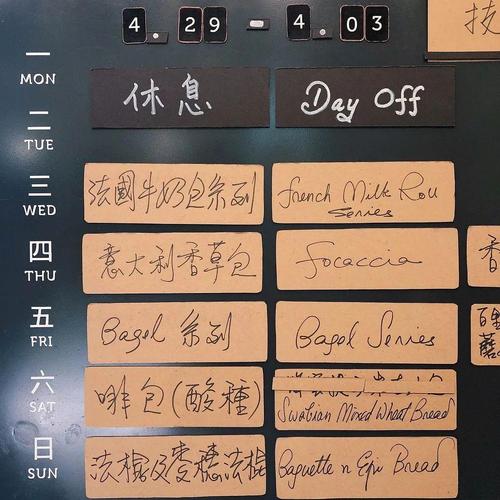 4. 29 - 4. 03
技
一 MON
休息 Day Off
二 TUE
三 WED
法國牛奶包系列 French Milk Roll Series
四 THU
意大利香草包 focaccia 香
五 FRI
Bagel 系列 Bagel Series
六 SAT
啡包(酸種) Swabian Mixed Wheat Bread
日 SUN
法棍及麥穗法棍 Baguette n Epi Bread